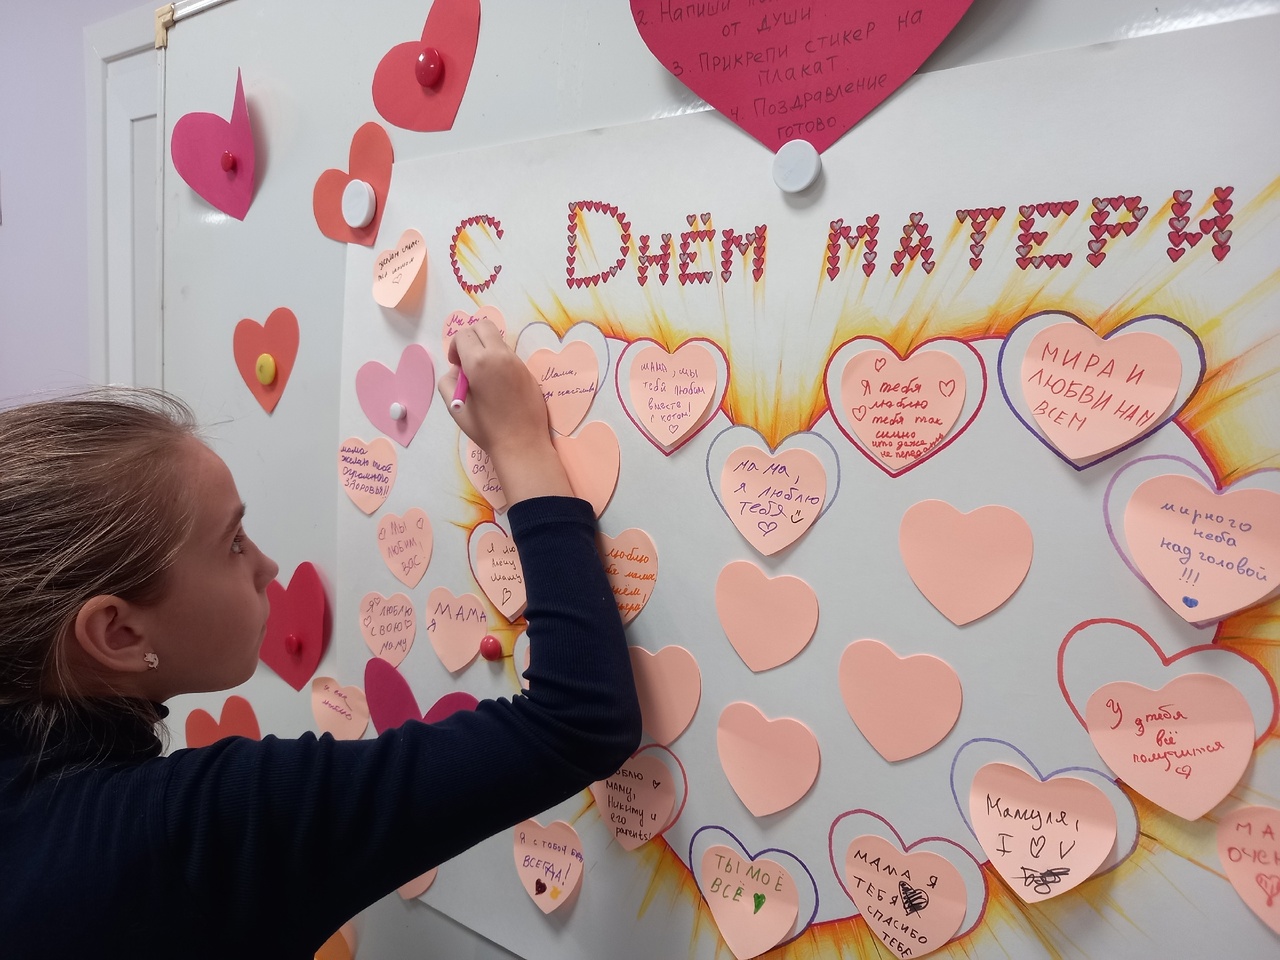 2. Напиши
от души
3. Прикрепи стикер на
плакат
4. Поздравление
готово.
С Днём матери
Мама,
счастлива
мама, мы
тебя любим
вместе
с котом!
Я тебя
люблю
тебя так
сильно
что даже
не передать
МИРА И
ЛЮБВИ НАМ
ВСЕМ
мама,
я люблю
тебя
мирного
неба
над головой
!!!
мама
желаю тебе
огромного
здоровья!!
МЫ
ЛЮБИМ
ВАС
Я ЛЮБЛЮ
СВОЮ
МАМУ
МАМА
Я
Я
маму
люблю
мама
Я вас
люблю
У тебя
всё
получится
ЛЮБЛЮ
МАМУ,
Никиту и
его
parents!
Мамуля,
I ♡ V
Я С ТОБОЙ БУДУ
ВСЕГДА!
ТЫ МОЁ
ВСЁ
МАМА Я
ТЕБЯ
СПАСИБО
ТЕБЕ
МА
ОЧЕН